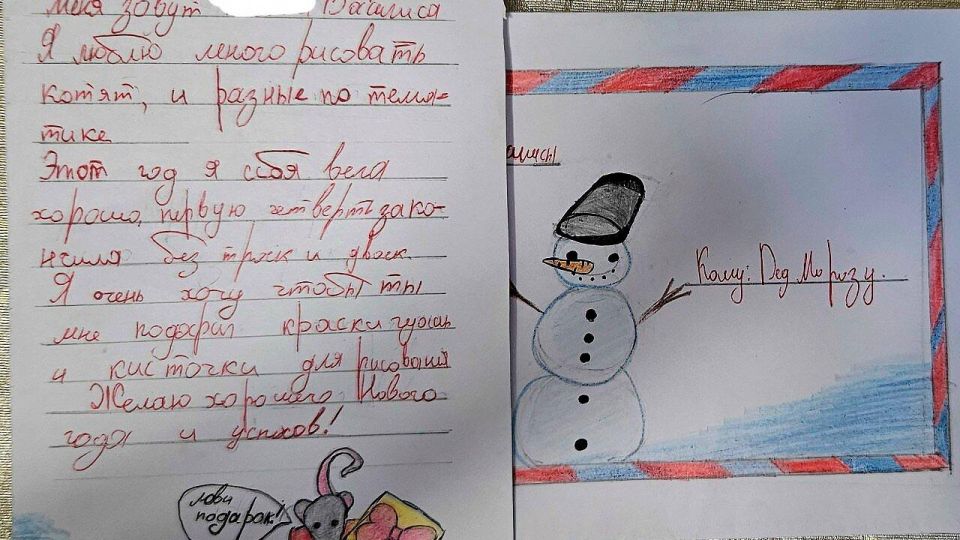 меня зовут Василиса
Я люблю много рисовать
котят, и разные по тема-
тике
Этот год я себя вела
хорошо, первую четверть зако-
нчила без троек и двоек
Я очень хочу чтобы ты
мне подарил краски гуашь
и кисточки для рисования
Желаю хорошего Нового
года и успехов!
лови
подарок!
Кому: Дед Морозу.